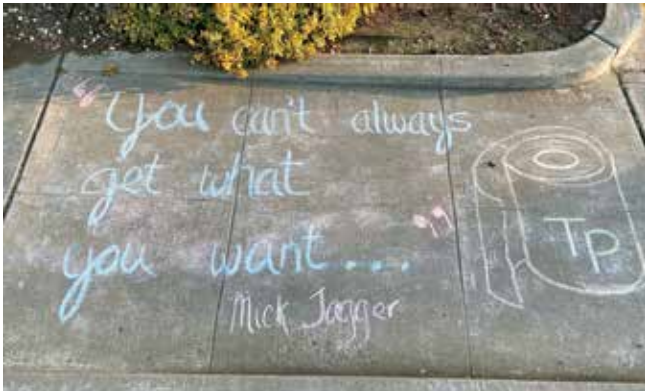 "You can't always
get what
you want...."
Mick Jagger
TP